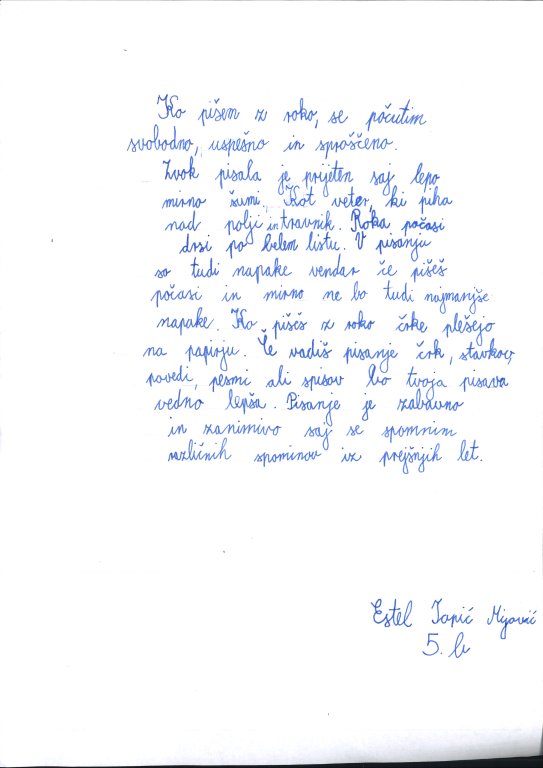 Ko pišem z roko, se počutim
svobodno, uspešno in sproščeno.
Zvok pisala je prijeten saj lepo
mirno šumi. Kot veter, ki piha
nad polji in travnik. Roka počasi
drsi po belem listu. V pisanju
so tudi napake vendar če pišeš
počasi in mirno ne bo tudi najmanjše
napake. Ko pišeš z roko črke plešejo
na papirju. Če vadiš pisanje črk, stavkov,
povedi, pesmi ali spisov bo tvoja pisava
vedno lepša. Pisanje je zabavno
in zanimivo saj se spomnim
različnih spominov iz prejšnjih let.
Estel
5. b